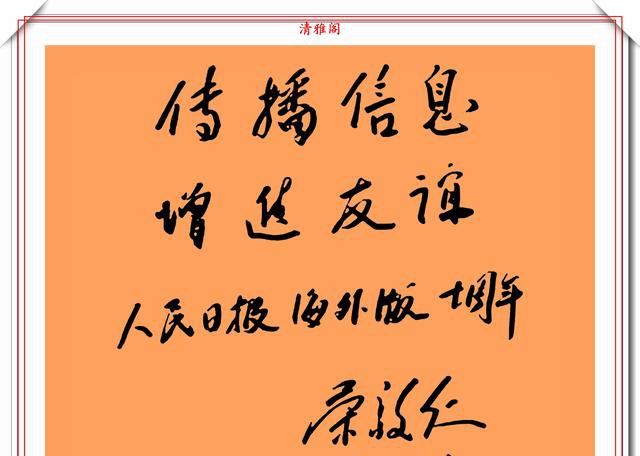 清雅阁
传播信息
增进友谊
人民日报海外版十周年
荣毅仁